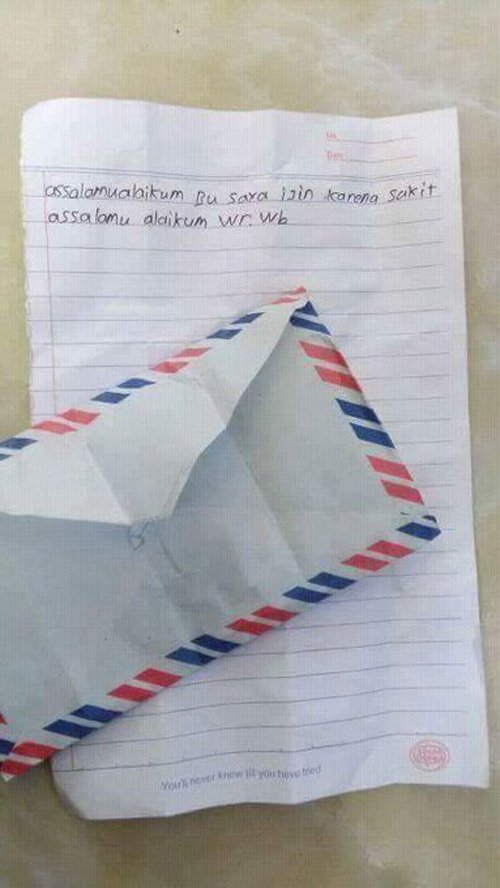 No.
Date
assalamualaikum Bu sara izin karena sakit
assalamu alaikum wr. wb
You'll never know till you have tried